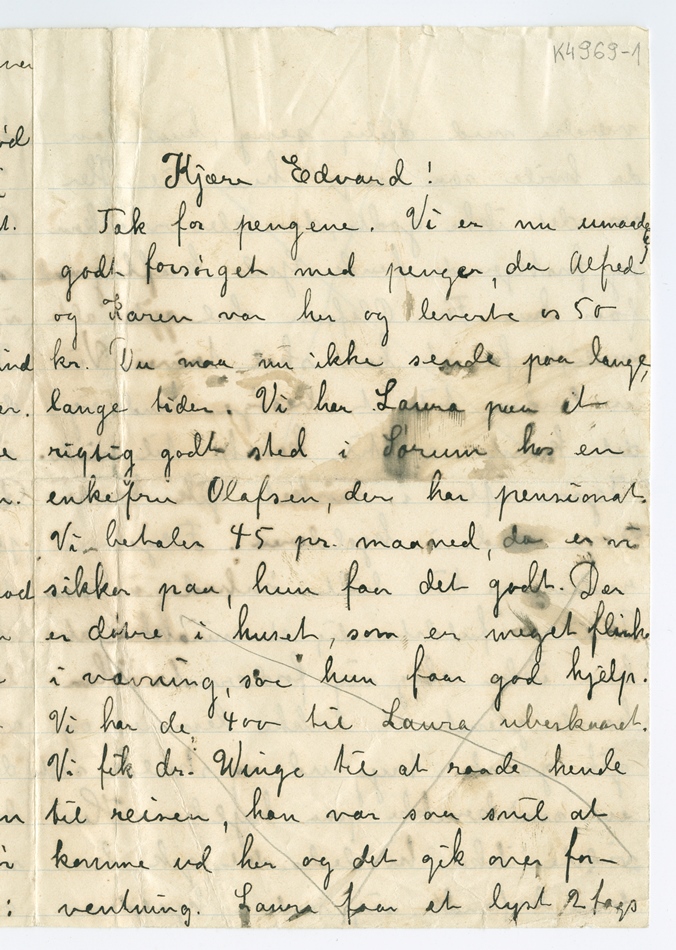 K4969-1
Kjære Edvard!
Tak for pengene. Vi er nu umaade
godt forsörget med penger, da Alfred
og Karen var her og leverte os 50
kr. Du maa nu ikke sende paa lange,
lange tider. Vi har Laura paa et
rigtig godt sted i Sörum hos en
enkefru Olafsen, der har pensionat.
Vi betaler 45 pr. maaned, da er vi
sikker paa, hun faar det godt. Der
er döttre i huset, som er meget flinke
i vævning, saa hun faar god hjelp.
Vi har de 400 til Laura ubeskaaret.
Vi fik dr. Winge til at raade hende
til reisen, han var saa snil at
komme ud her og det gik over for-
ventning. Laura faar et lyst 2 fags